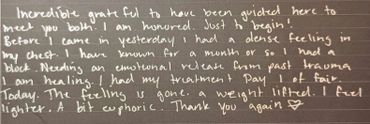 Incredible grateful to have been guided here to
meet you both. I am honored. Just to begin!
Before I came in yesterday I had a dense feeling in
my chest. I have known for a month or so I had a
block. Needing an emotional release from past trauma
I am healing. I had my treatment Day 1 of fair.
Today. The feeling is gone. a weight lifted. I feel
lighter. A bit euphoric. Thank you again ♡